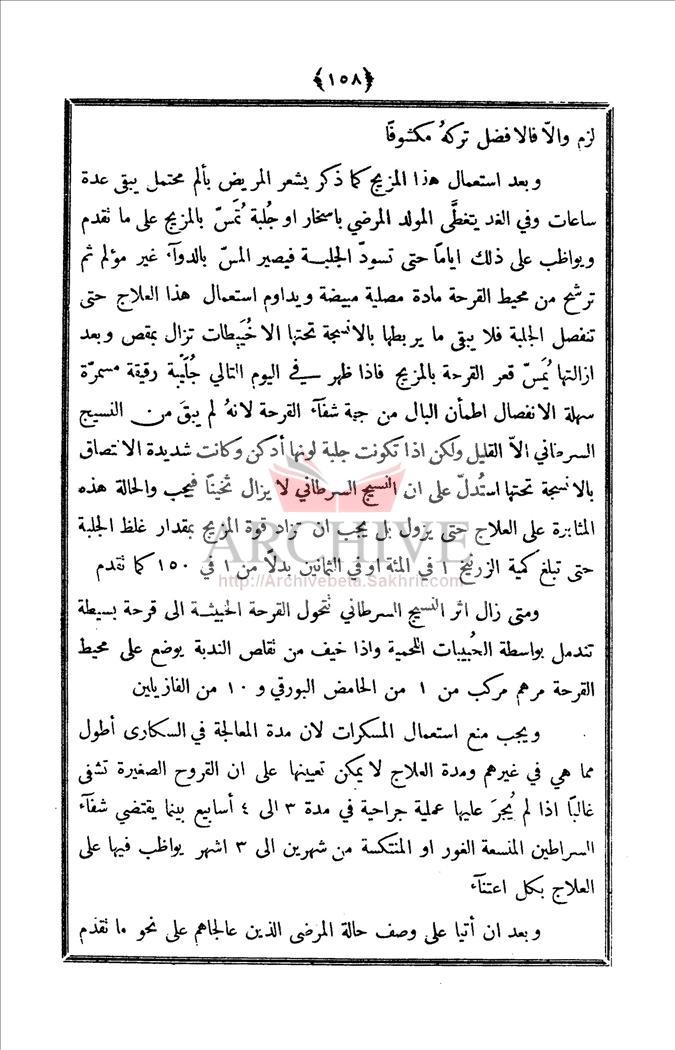 ﴿١٥٨﴾
لزم والاّ فالافضل تركهُ مكشوفًا
وبعد استعمال هذا المزيج كما ذكر يشعر المريض بألم محتمل يبقى عدة
ساعات وفي الغد يتغطَّى المولد المرضي باسخار او جُلبة تُمَسّ بالمزيج على ما نقدم
ويواظب على ذلك ايامًا حتى تسودّ الجلبة فيصير المسّ بالدوآء غير مؤلم ثم
ترشح من محيط القرحة مادة مصلية مبيضة ويداوم استعمال هذا العلاج حتى
تنفصل الجلبة فلا يبقى ما يربطها بالانسجة تحتها الا خُيَيطات تزال بمقص وبعد
ازالتها يُمَسّ قعر القرحة بالمزيج فاذا ظهر في اليوم التالي جُلَيبة رقيقة مسمرّة
سهلة الانفصال اطمأن البال من جهة شفآء القرحة لانهُ لم يبقَ من النسيج
السرطاني الاّ القليل ولكن اذا تكونت جلبة لونها أدكن وكانت شديدة الالتصاق
بالانسجة تحتها استُدلّ على ان النسيج السرطاني لا يزال ثخينًا فيجب والحالة هذه
المثابرة على العلاج حتى يزول بل يجب ان تزاد قوة المزيج بمقدار غلظ الجلبة
حتى تبلغ كمية الزرنيخ ١ في المئة او في الثمانين بدلًا من ١ في ١٥٠ كما نقدم
ومتى زال اثر النسيج السرطاني تتحول القرحة الخبيثة الى قرحة بسيطة
تندمل بواسطة الحُبيبات اللحمية واذا خيف من نقلص الندبة يوضع على محيط
القرحة مرهم مركب من ١ من الحامض البورقي و ١٠ من الفازيلين
ويجب منع استعمال المسكرات لان مدة المعالجة في السكارى أطول
مما هي في غيرهم ومدة العلاج لا يمكن تعيينها على ان القروح الصغيرة تشفى
غالبًا اذا لم يُجرَ عليها عملية جراحية في مدة ٣ الى ٤ أسابيع بينما يقتضي شفآء
السراطين المتسعة الغور او المنتكسة من شهرين الى ٣ اشهر يواظب فيها على
العلاج بكل اعتنآء
وبعد ان أتيا على وصف حالة المرضى الذين عالجاهم على نحو ما نقدم
ARCHIVE
http://Archivebeta.Sakhrit.com